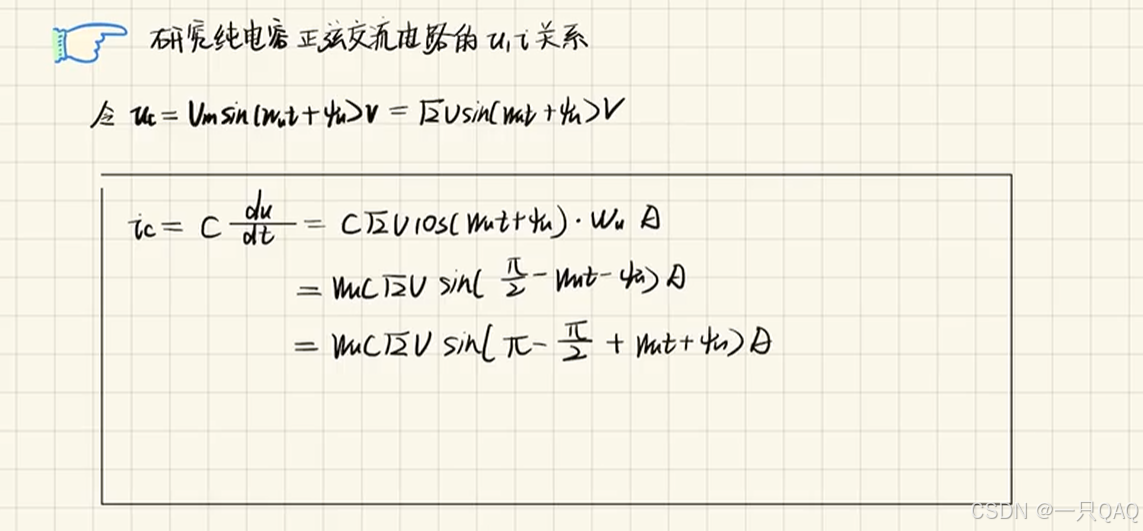 研究纯电容正弦交流电路的u,i关系
令 uc = Um sin(ωut+ψu)V = √2U sin(ωut+ψu)V
ic = C du/dt = C√2U cos(ωut+ψu)·ωu A
= ωuC√2U sin(π/2-ωut-ψu)A
= ωuC√2U sin(π-π/2+ωut+ψu)A
CSDN @一只QAQ